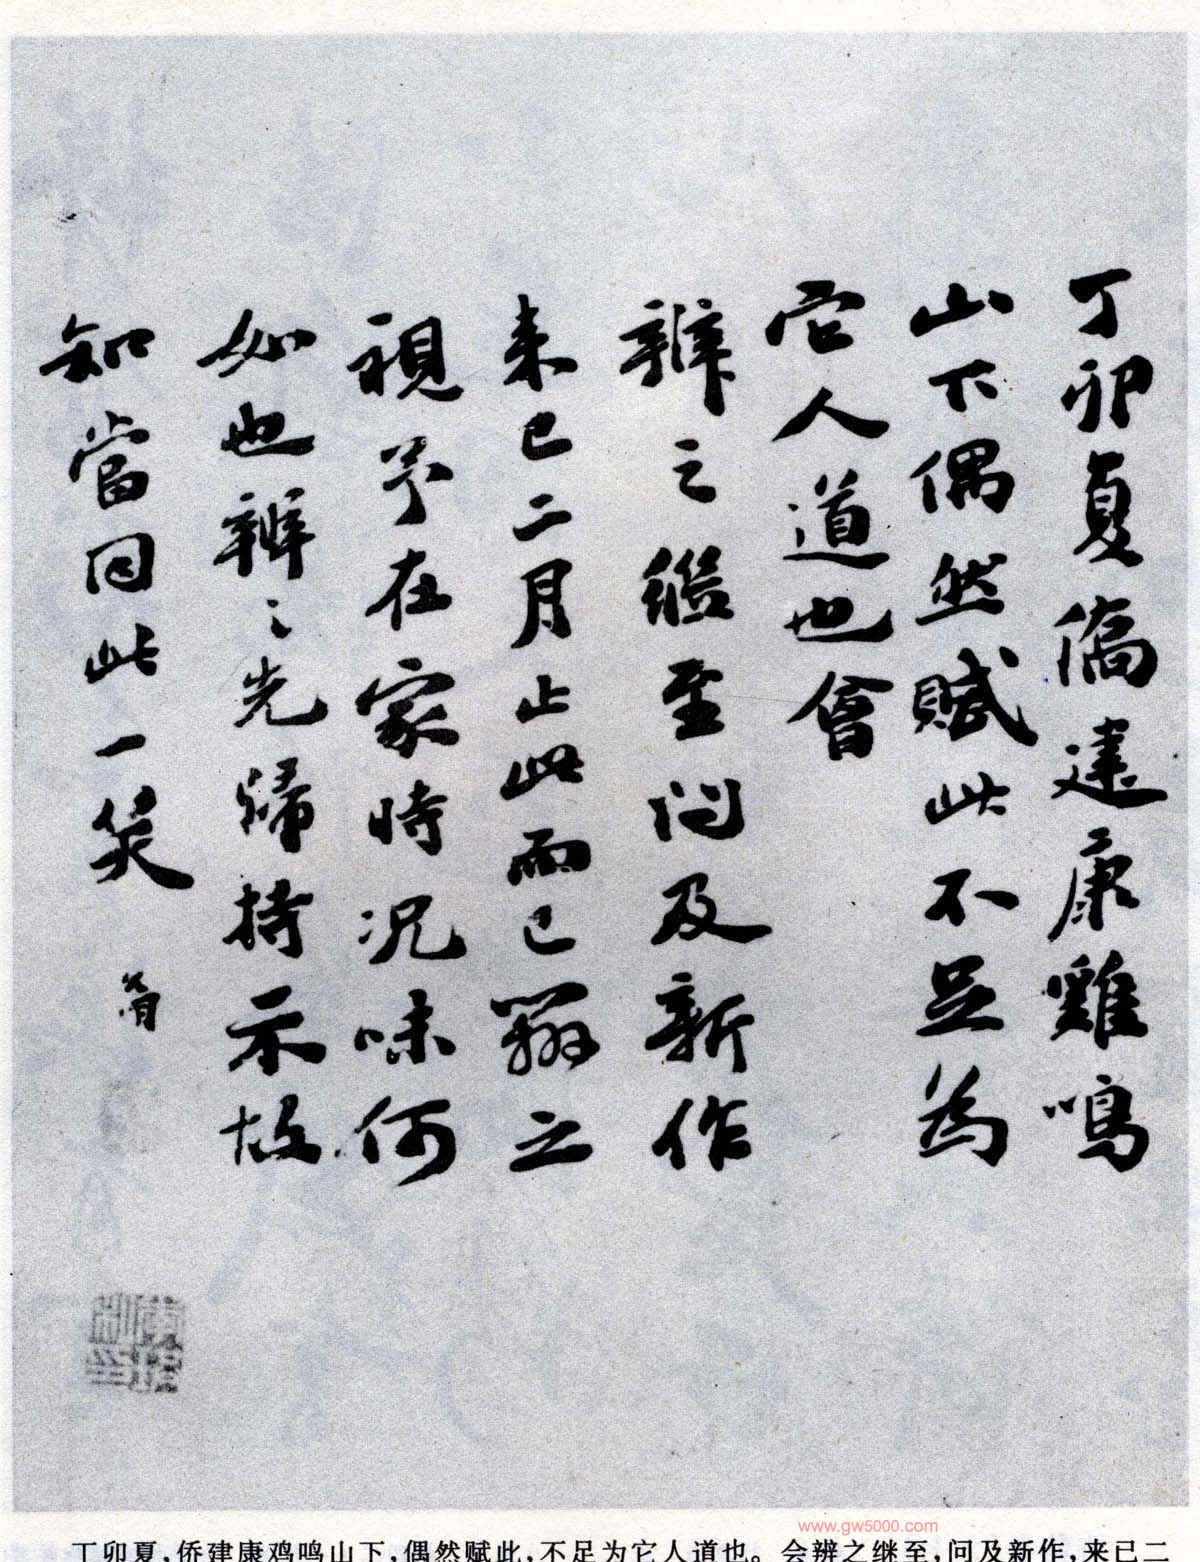 丁卯夏僑建康雞鳴
山下偶然賦此不足為
它人道也會
辨之繼至問及新作
来已二月止此而已翱之
視予在家時況味何
如也辨之先歸持示故
知當同此一笑
www.gw5000.com
丁卯夏,侨建康鸡鸣山下,偶然赋此,不足为它人道也。会辨之继至,问及新作,来已二